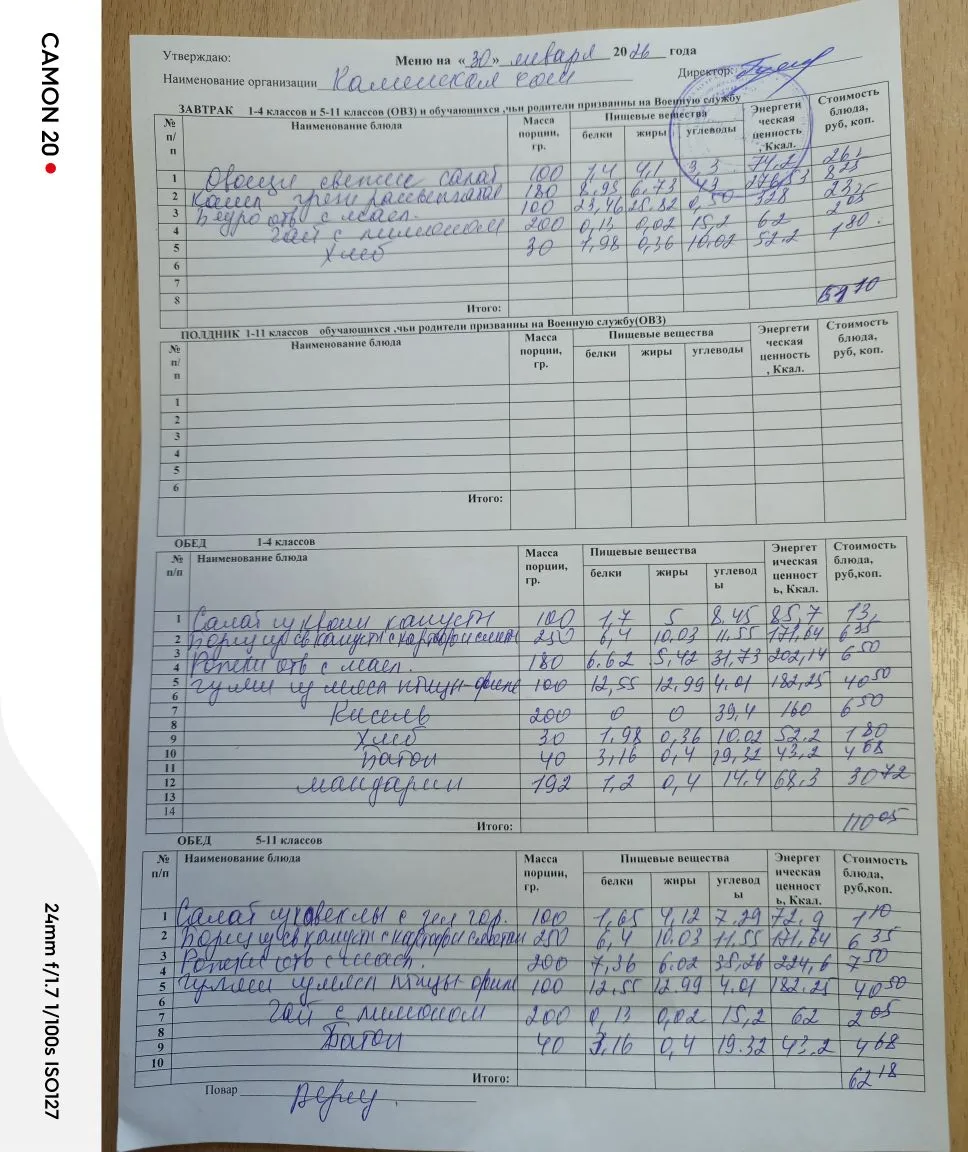 CAMON 20
24mm f/1.7 1/100s ISO127
Утверждаю: Меню на «30» января 2026 года
Наименование организации Каменская сош Директор:
ЗАВТРАК 1-4 классов и 5-11 классов (ОВЗ) и обучающихся ,чьи родители призванны на Военную службу
№ п/п Наименование блюда Масса порции, гр. Пищевые вещества белки жиры углеводы Энергетическая ценность, Ккал. Стоимость блюда, руб, коп.
1 Овощи свежие салат 100 1,4 4,1 3,3 74.2
2 Каша греч рассыпчатая 180 8.95 6.73 43 276.53 8 25
3 Бедро отв с масл. 100 23,46 25.82 0,50 328 23 25
4 Чай с лимоном 200 0,13 0,02 15,2 62 2 05
5 Хлеб 30 1,98 0,36 10.02 52.2 1 80
6
7
8
Итого: 10
ПОЛДНИК 1-11 классов обучающихся ,чьи родители призванны на Военную службу(ОВЗ)
№ п/п Наименование блюда Масса порции, гр. Пищевые вещества белки жиры углеводы Энергетическая ценность, Ккал. Стоимость блюда, руб, коп.
1
2
3
4
5
6
Итого:
ОБЕД 1-4 классов
№ п/п Наименование блюда Масса порции, гр. Пищевые вещества белки жиры углеводы Энергетическая ценность, Ккал. Стоимость блюда, руб,коп.
1 Салат из квош капусты 100 1,7 5 8.45 85,7 13,
2 Борщ из св капусты с картоф и сметан 250 6,4 10,03 11.55 171,64 6 35
3
4 Рожки отв с масл. 180 6.62 5,42 31,73 202,14 6 50
5 Гуляш из мяса птицы-филе 100 12,55 12,99 4.01 182,25 40 50
6
7 Кисель 200 0 0 39,4 160 6 50
8
9 Хлеб 30 1.98 0,36 10.02 52.2 1 80
10 Батон 40 3,16 0,4 19,32 43,2 4 68
11
12 мандарин 192 1,2 0,4 14.4 68,3 30 72
13
14
Итого: 110 05
ОБЕД 5-11 классов
№ п/п Наименование блюда Масса порции, гр. Пищевые вещества белки жиры углеводы Энергетическая ценность, Ккал. Стоимость блюда, руб,коп.
1 Салат из свеклы с зел гор. 100 1,65 4,12 7.29 72.9 1 10
2 Борщ из св капусты с картоф и сметан 250 6,4 10.03 11.55 171,64 6 35
3 Рожки отв с масл. 200 7,36 6.02 35,26 224,6 7 50
4
5 Гуляш из мяса птицы-филе 100 12.55 12.99 4.01 182.25 40 50
6
7 Чай с лимоном 200 0,13 0,02 15,2 62 2 05
8
9 Батон 40 3,16 0,4 19.32 43,2 4 68
10
Итого: 62 18
Повар